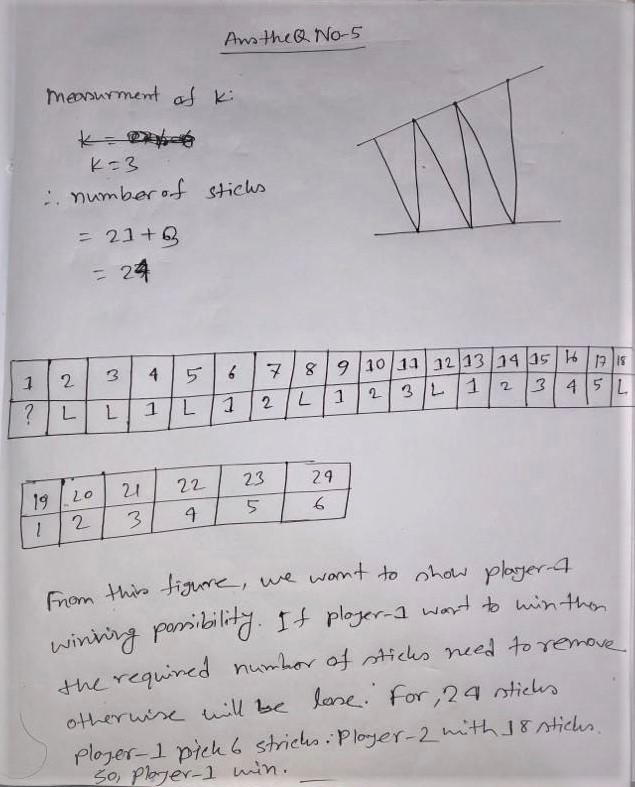 Ans the Q No-5
Measurment of K:
K=3
∴ number of sticks
= 21+3
= 24
1 2 3 4 5 6 7 8 9 10 11 12 13 14 15 16 17 18
? L L 1 L 1 2 L 1 2 3 L 1 2 3 4 5 L
19 20 21 22 23 24
1 2 3 4 5 6
From this figure, we want to show player-1
winning possibility. If player-1 want to win then
the required number of sticks need to remove
otherwise will be lose. For, 24 sticks
player-1 pick 6 stricks. Player-2 with 18 sticks.
so, player-1 win.